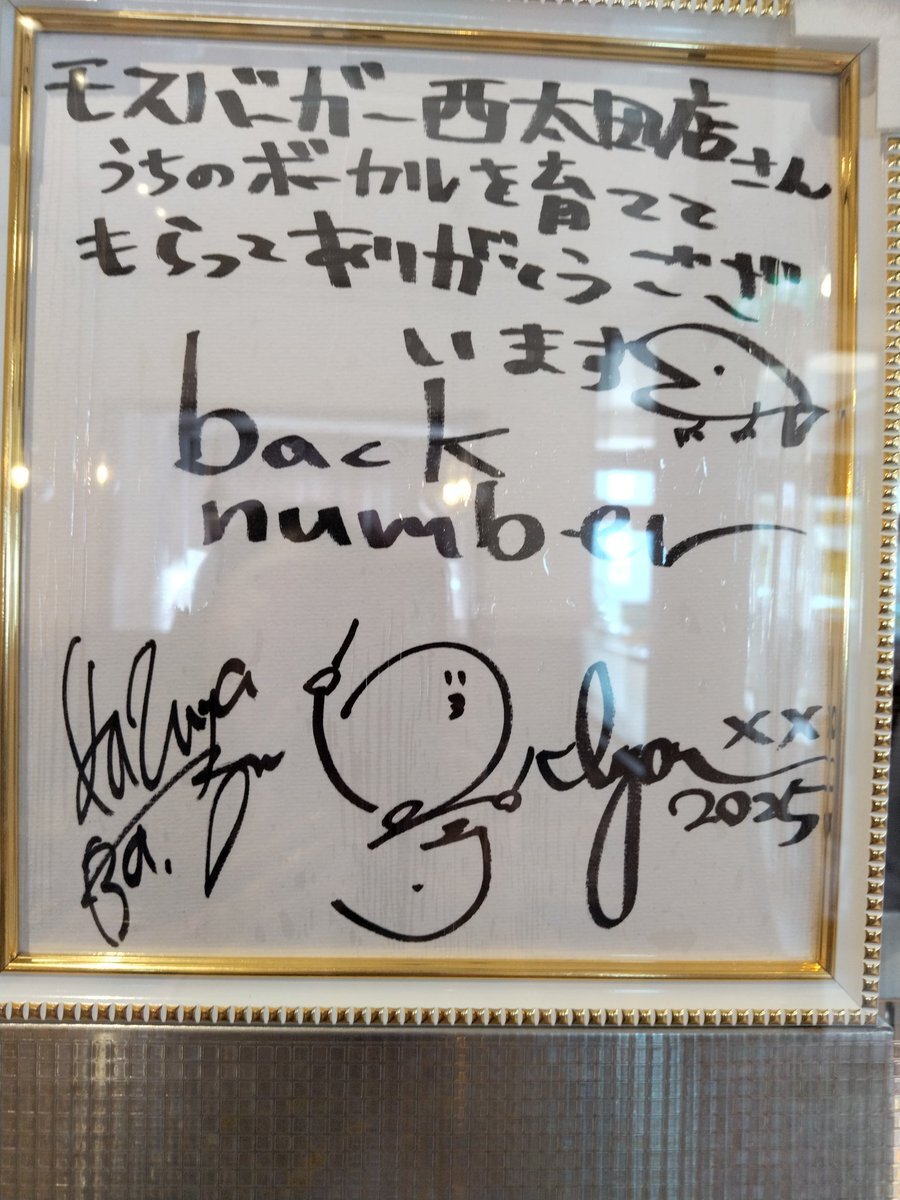 モスバーガー西太田店さん
うちのボーカルを育てて
もらってありがとうござ
います
back
number
Kazuya
xx
2025